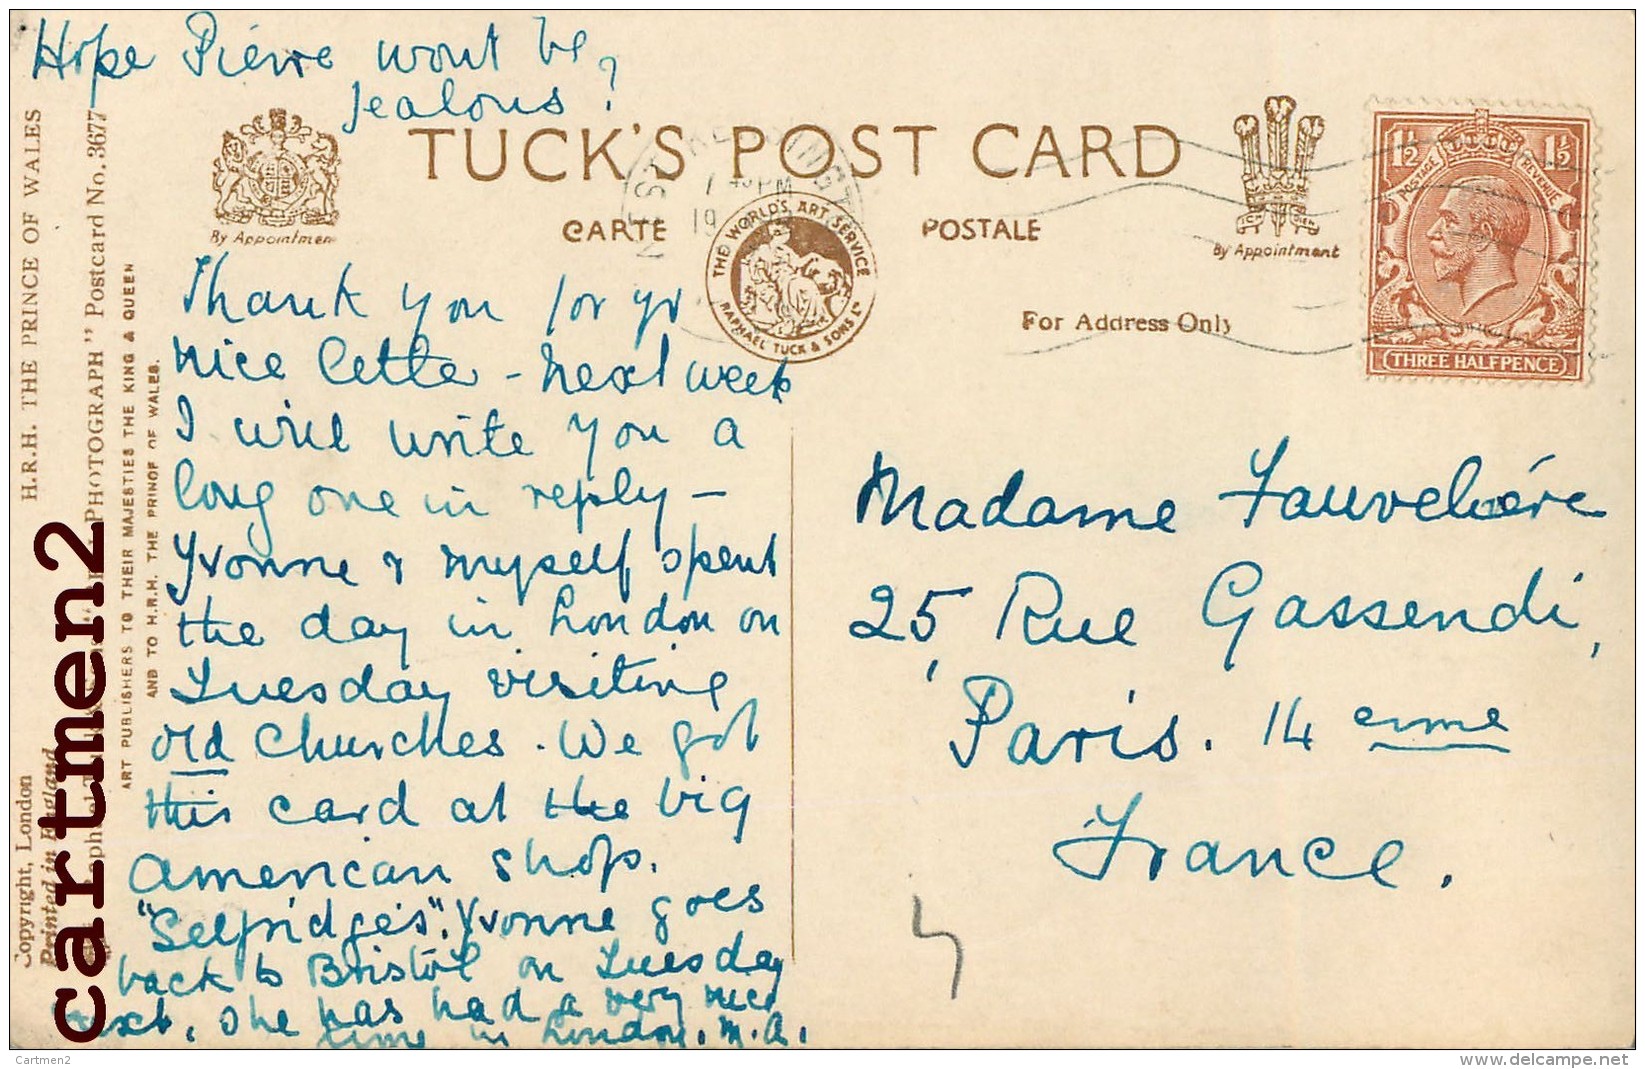 Hope Pierre wont be
jealous?
TUCK'S POST CARD
CARTE POSTALE
By Appointment
THE WORLD'S ART SERVICE
RAPHAEL TUCK & SONS LD
ICH DIEN
By Appointment
For Address Only
1½ 1½
POSTAGE REVENUE
THREE HALFPENCE
PM
19
H.R.H. THE PRINCE OF WALES
PHOTOGRAPH" Postcard No. 3677
ART PUBLISHERS TO THEIR MAJESTIES THE KING & QUEEN
AND TO H.R.H. THE PRINCE OF WALES.
Copyright, London
Printed in England
Thank you for yr
nice letter - next week
I will write you a
long one in reply -
Yvonne & myself spent
the day in London on
Tuesday visiting
old Churches. We got
this card at the big
American shop.
"Selfridge's". Yvonne goes
back to Bristol on Tuesday
next. She has had a very nice
time in London. M.A.
Madame
25, Rue Gassendi,
Paris. 14 eme
France.
cartmen2
Cartmen2
www.delcampe.net